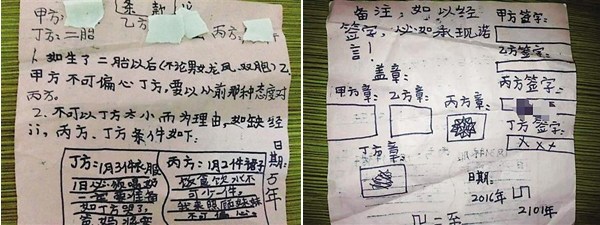 甲方:
条款
乙方:
丙方:
丁方:二胎
1.如生了二胎以后(不论男女龙凤双胞)乙
甲方不可偏心丁方,要以以前那种态度对
丙方。
2.不可以丁方太小而为理由,如缺经
丙方、丁方条件如下:
丁方:1月3件衣服
1日必须喝奶
如丁方哭了,
爸妈
丙方:1月2件裙子
零食饮水不
可少一件。
我来照顾妹妹
不可偏心。
日期:5年
备注:如以经
签字,必如承现诺
言!
盖章:
甲方章:
乙方章:
丙方章:
丁方章:
甲方签字:
乙方签字:
丙方签字:
丁方签字:
×××
日期:
2016年
2101年